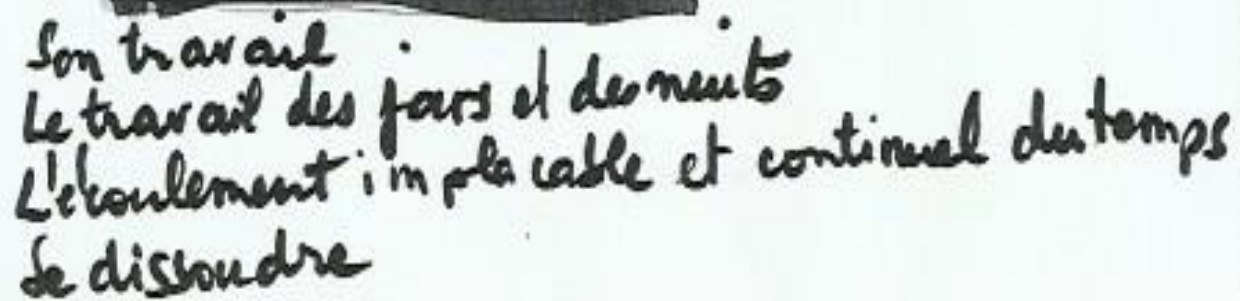 Son travail
Le travail des jours et des nuits
L'écoulement implacable et continuel du temps
Se dissoudre